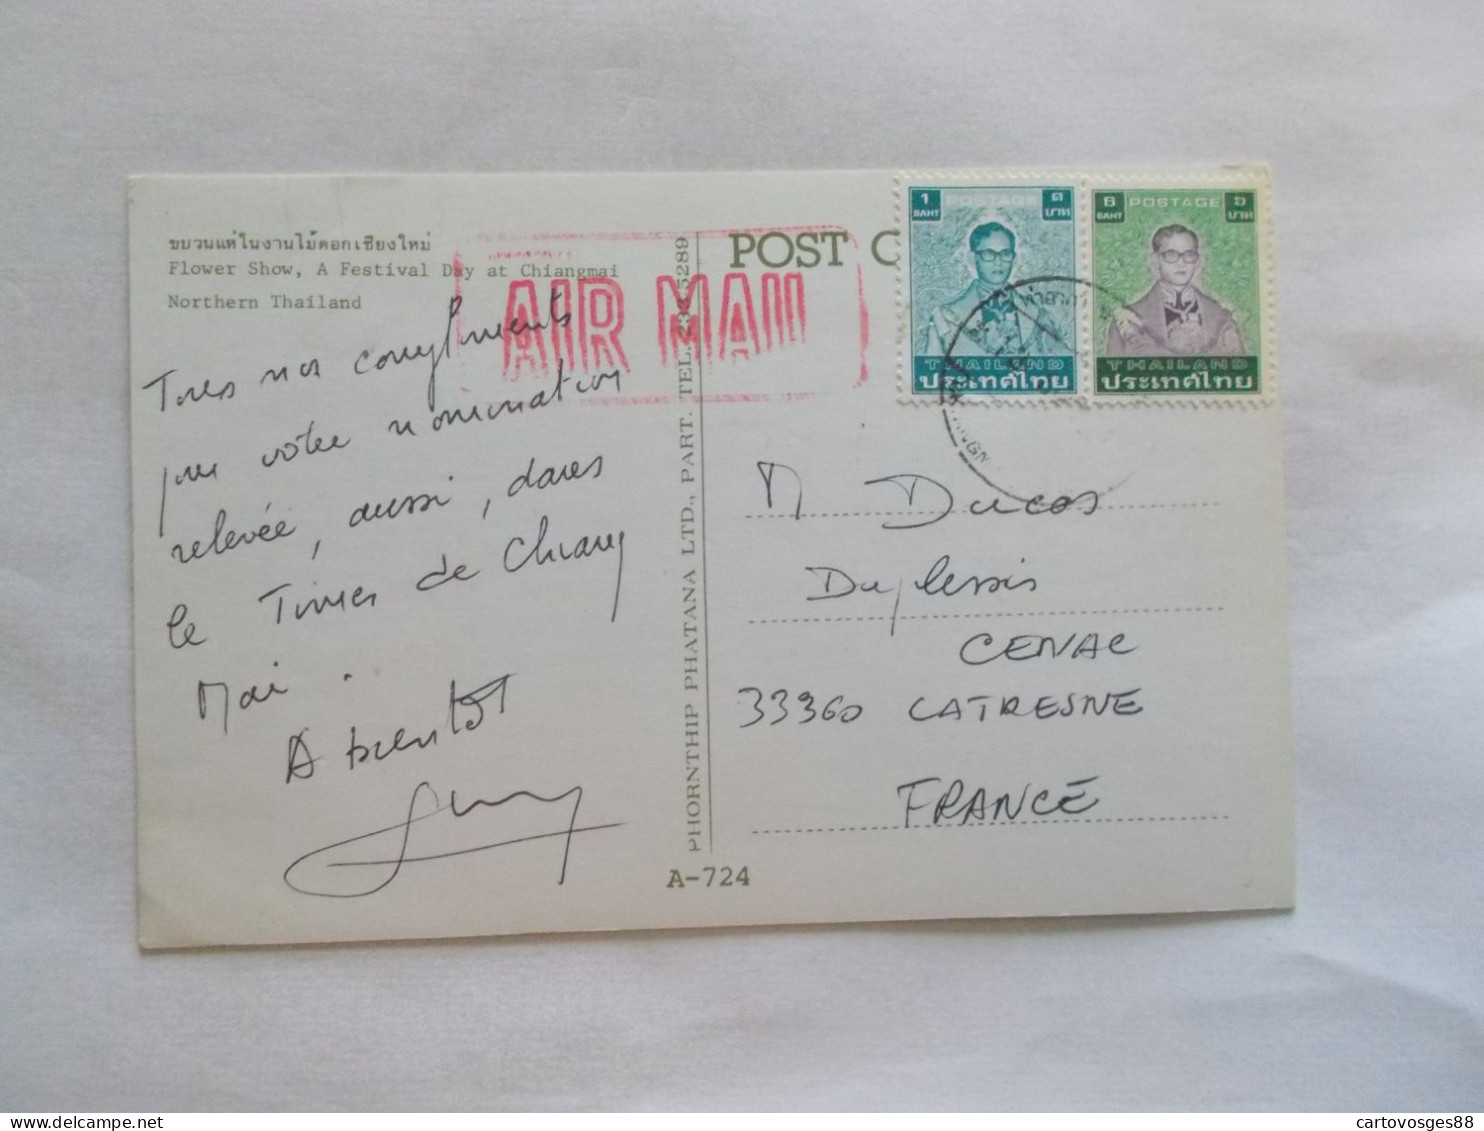 ขบวนแห่ในงานไม้ดอกเชียงใหม่
Flower Show, A Festival Day at Chiangmai
Northern Thailand
AIR MAIL
POST C
1 BAHT POSTAGE ๑ บาท
THAILAND
ประเทศไทย
6 BAHT POSTAGE ๖ บาท
THAILAND
ประเทศไทย
Tous nos compliments
pour votre nomination
relevée, aussi, dans
le Times de Chiang
Mai.
A bientôt
PHORNTHIP PHATANA LTD., PART. TEL. 5289
A-724
M Ducos
Duplessis
CENAC
33360 LATRESNE
FRANCE
cartovosges88